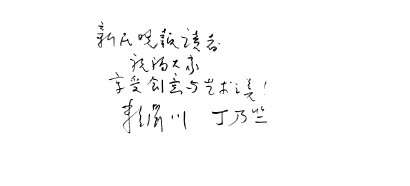 新民晚报读者
祝福大家
享受创意与艺术之美！
赖声川 丁乃竺